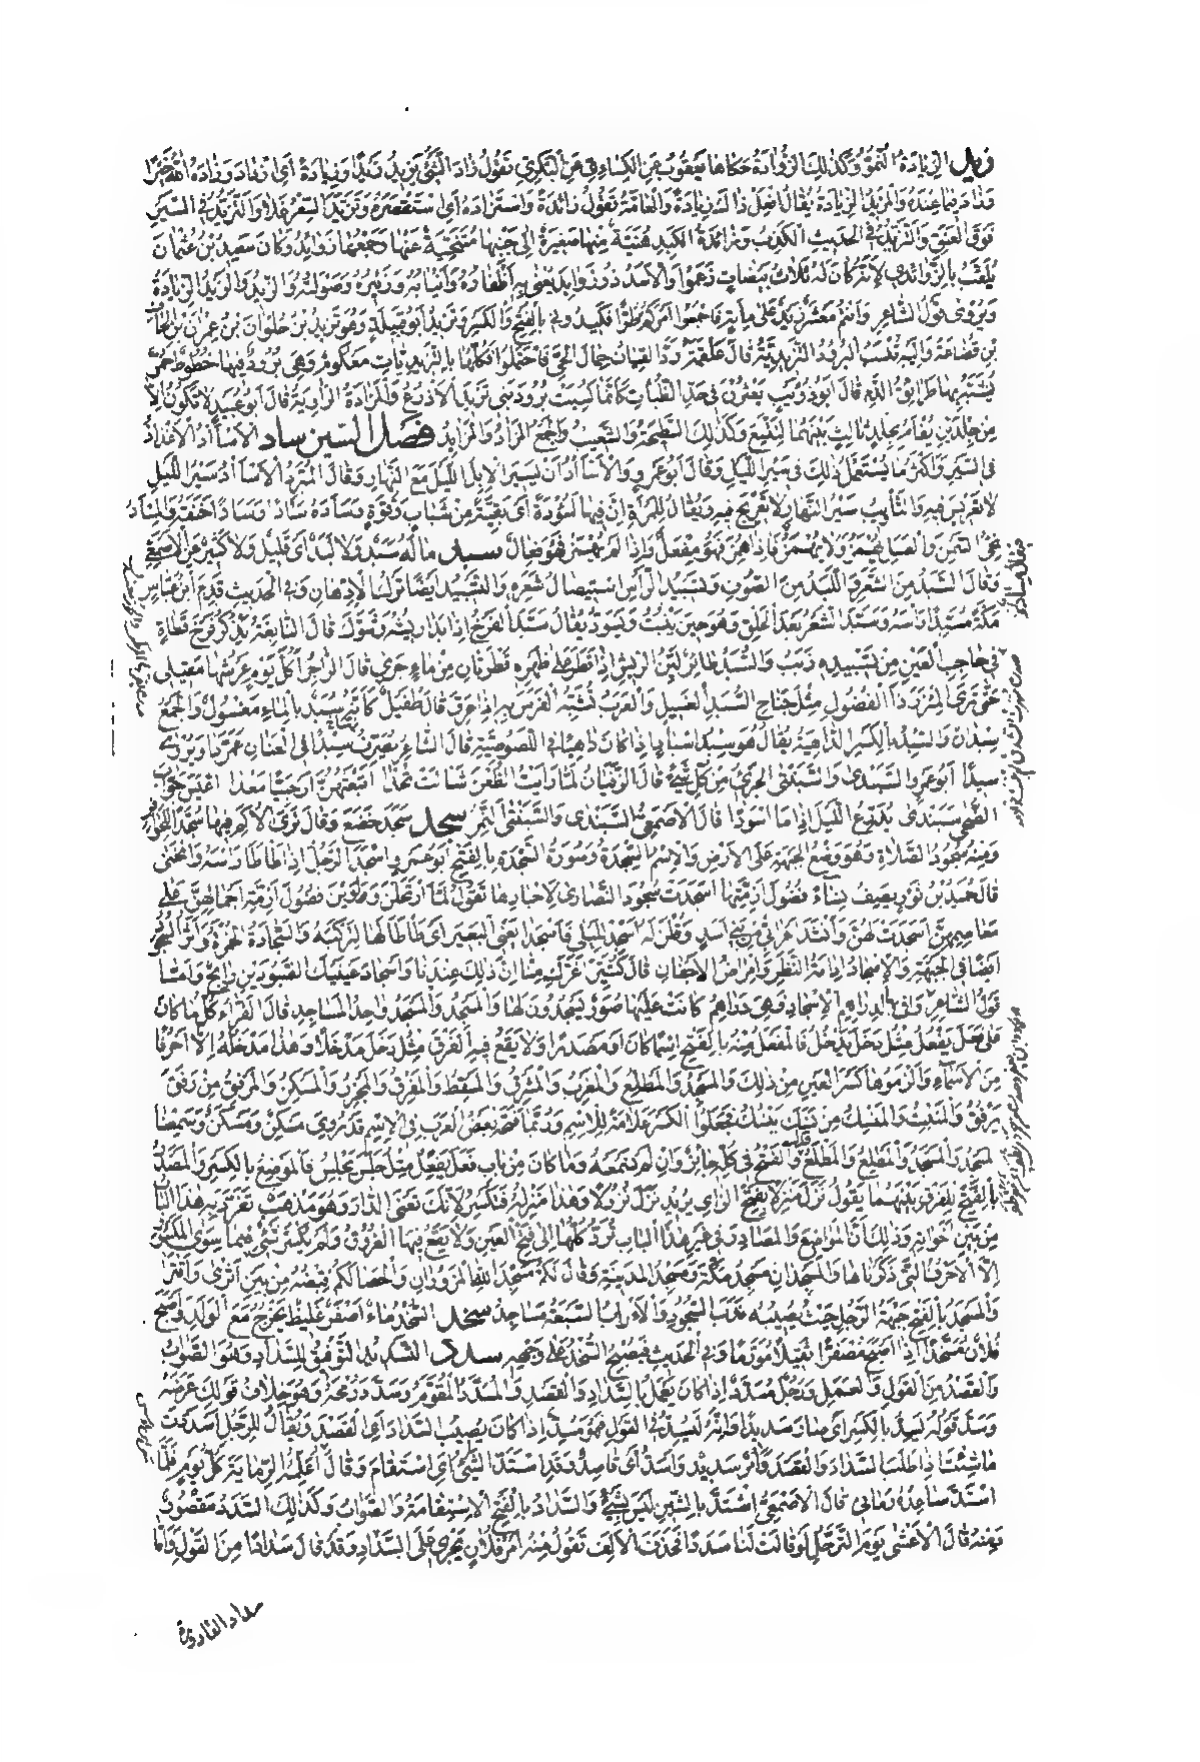 زيد الزيادة النمو وكذلك الزوادة حكاها يعقوب عن الكسائي عن البكري تقول زاد الشئ يزيد زيدا وزيادة أي ازداد وزاده الله خيرا
وزاد فيما عنده والمزيد الزيادة يقال افعل ذلك زيادة والعامة تقول زائدة واستزاده أي استقصره وتزيد السعر غلا والتزيد في السير
فوق العنق والتزيد في الحديث الكذب وزائدة الكبد هنية منها صغيرة إلى جنبها متنحية عنها وجمعها زوائد وكان سعيد بن عثمان
يلقب بالزوائدي لأنه كان له ثلاث بيضات زعموا والأسد ذو زوائد يعني به أظفاره وأنيابه وزئيره وصولته والزيد والزيد الزيادة
ويروى قول الشاعر وأنتم معشر زيد على مائة فأجمعوا أمركم طرا فكيدوني بالفتح والكسر وتزيد أبو قبيلة وهو تزيد بن حلوان بن عمران بن الحاف
بن قضاعة وإليه تنسب البرود التزيدية قال علقمة رد القيان جمال الحي فاحتملوا فكلها بالتزيديات معكوم وهي برود فيها خطوط حمر
يشبه بها طرائق الدم قال أبو ذؤيب يعثرن في حد الظبات كأنما كسيت برود بني تزيد الأذرع والمزادة الراوية قال أبو عبيد لا تكون إلا
من جلدين يفأم بجلد ثالث بينهما لتتسع وكذلك السطيحة والشعيب والجمع المزاد والمزايد فصل السين سأد الإسآد الإغذاذ
في السير وأكثر ما يستعمل ذلك في سير الليل وقال أبو عمرو والإسآد أن يسير الإبل الليل مع النهار وقال المبرد الإسآد سير الليل
لا تعريس فيه والتأويب سير النهار لا تعريج فيه ويقال للمرأة إن فيها لسؤدة أي بقية من شباب وقوة وسأده سأدا وسأدا خنقه والمسأد
نحي السمن والعسل يهمز ولا يهمز فإذا همز فهو مفعل وإذا لم يهمز فهو فعال سبد ماله سبد ولا لبد أي قليل ولا كثير عن الأصمعي
وقال السبد من الشعر واللبد من الصوف وتسبيد الرأس استيصال شعره والتسبيد أيضا ترك الادهان وفي الحديث قدم ابن عباس
مكة مسبدا رأسه وسبد الشعر بعد الحلق وهو حين ينبت ويسود يقال سبد الفرخ إذا بدا ريشه وشوك قال النابغة يذكر فرخ قطاة
في حاجب العين من تسبيده زبب والسبد طائر لين الريش إذا قطر على ظهره قطرتان من ماء جرى قال الراجز أكل يوم عرشها مقيلي
حتى ترى المئزر ذا الفضول مثل جناح السبد الغسيل والعرب تشبه الفرس به إذا عرق قال طفيل كأنه سبد بالماء مغسول والجمع
سبدان والسبد بالكسر الداهية يقال هو سبد أسباد إذا كان داهيا في اللصوصية قال الشاعر يعرف سبدا في العنان عمردا ويروى
سيدا أبو عمرو السبندى والسبنتى الجرئ من كل شيء قال الزفيان لما رأيت الظعن شالت تحدى أتبعتهن أرحبيا معدا أعيس جواب
الضحى سبندى يدرع الليل إذا ما اسودا قال الأصمعي السبندى والسبنتى النمر سجد سجد خضع وقال ترى الأكم فيها سجدا للحوافر
ومنه سجود الصلاة وهو وضع الجبهة على الأرض والاسم السجدة وسورة السجدة بالفتح أبو عمرو أسجد الرجل إذا طأطأ رأسه وانحنى
قال حميد بن ثور يصيف نساء فضول أزمتها أسجدت سجود النصارى لأحبارها تقول لما ارتحلن ولوين فضول أزمة أجمالهن على
معاصمهن أسجدت لهن وأنشد أعرابي من بني أسد وقلن له أسجد لليلى فأسجدا يعني البعير أي طأطأ لها لتركبه والسجادة الخمرة وأثر السجود
أيضا في الجبهة والإسجاد إدامة النظر وإمراض الأجفان قال كثير أغرك منا أن ذلك عندنا وإسجاد عينيك الصيودين رابح وأما
قول الشاعر وافى بها كدراهم الإسجاد وهي دراهم كانت عليها صور يسجدون لها والمسجد والمسجد واحد المساجد قال الفراء كل ما كان
على فعل يفعل مثل دخل يدخل فالمفعل منه بالفتح اسما كان أو مصدرا ولا يقع فيه الفرق مثل دخل مدخلا وهذا مدخله إلا أحرفا
من الأسماء ألزموها كسر العين من ذلك والمسجد والمطلع والمغرب والمشرق والمسقط والمفرق والمجزر والمسكن والمرفق من رفق
يرفق والمنبت والمنسك من نسك ينسك فجعلوا الكسر علامة للاسم وربما فتحه بعض العرب في الاسم قد روي مسكن ومسكن وسمعنا
المسجد والمسجد والمطلع والمطلع والفتح في كله جائز وإن لم نسمعه وما كان من باب فعل يفعل مثل جلس يجلس فالموضع بالكسر والمصدر
بالفتح للفرق بينهما يقول نزل منزلا بفتح الزاي يريد نزل نزولا وهذا منزله فتكسر لأنك تعني الدار وهو مذهب تفرد به هذا الباب
من بين أخواته وذلك أن المواضع والمصادر في غير هذا الباب ترد كلها إلى فتح العين ولا يقع فيها الفروق ولم يكسر شئ فيما سوى المذكور
إلا الأحرف التي ذكرناها والمسجدان مسجد مكة ومسجد المدينة وقال لكم مسجد الله المزوران والحصى لكم قبضه من بين أثرى وأقترا
والمسجد بالفتح جبهة الرجل حيث يصيبه ندب السجود والآراب السبعة مساجد سخد السخد ماء أصفر غليظ يخرج مع الولد وأصبح
فلان مسخدا إذا أصبح مصفرا ثقيلا مورما وفي الحديث فيصبح السخد على وجهه سدد التسديد التوفيق للسداد وهو الصواب
والقصد من القول والعمل ورجل مسدد إذا كان يعمل بالسداد والقصد والمسدد المقوم وسدد رمحه وهو خلاف قولك عرضه
وسد قوله يسد بالكسر أي صار سديدا وإنه ليسد في القول فهو مسد إذا كان يصيب السداد أي القصد ويقال للرجل أسددت
ما شئت إذا طلب السداد والقصد وأمر سديد وأسد أي قاصد وقد استد الشئ أي استقام وقال أعلمه الرماية كل يوم فلما
استد ساعده رماني قال الأصمعي اشتد بالشين ليس بشيء والسداد بالفتح الاستقامة والصواب وكذلك السدد مقصور
منه قال الأعشى يوم الترحل لو قالت لنا سددا فحذف الألف تقول منه أمر فلان يجري على السداد وقد قال سدادا من القول وأما
سداد القارورة